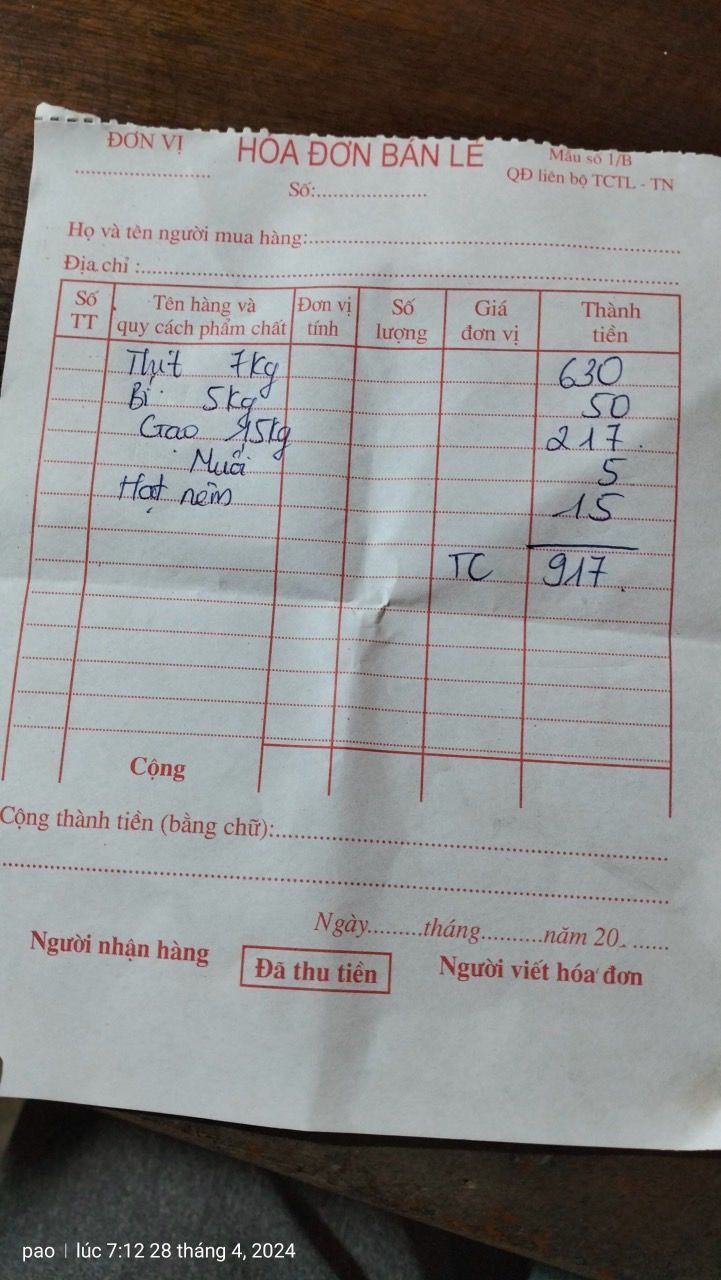 ĐƠN VỊ
HÓA ĐƠN BÁN LẺ
Mẫu số 1/B
QĐ liên bộ TCTL - TN
Số:
Họ và tên người mua hàng:
Địa chỉ :
Số TT
Tên hàng và quy cách phẩm chất
Đơn vị tính
Số lượng
Giá đơn vị
Thành tiền
Thịt 7kg 630
Bí 5kg 50
Gạo 15kg 217
Muối 5
Hạt nêm 15
TC 917
Cộng
Cộng thành tiền (bằng chữ):
Ngày........tháng.........năm 20
Người nhận hàng
Đã thu tiền
Người viết hóa đơn
pao | lúc 7:12 28 tháng 4, 2024